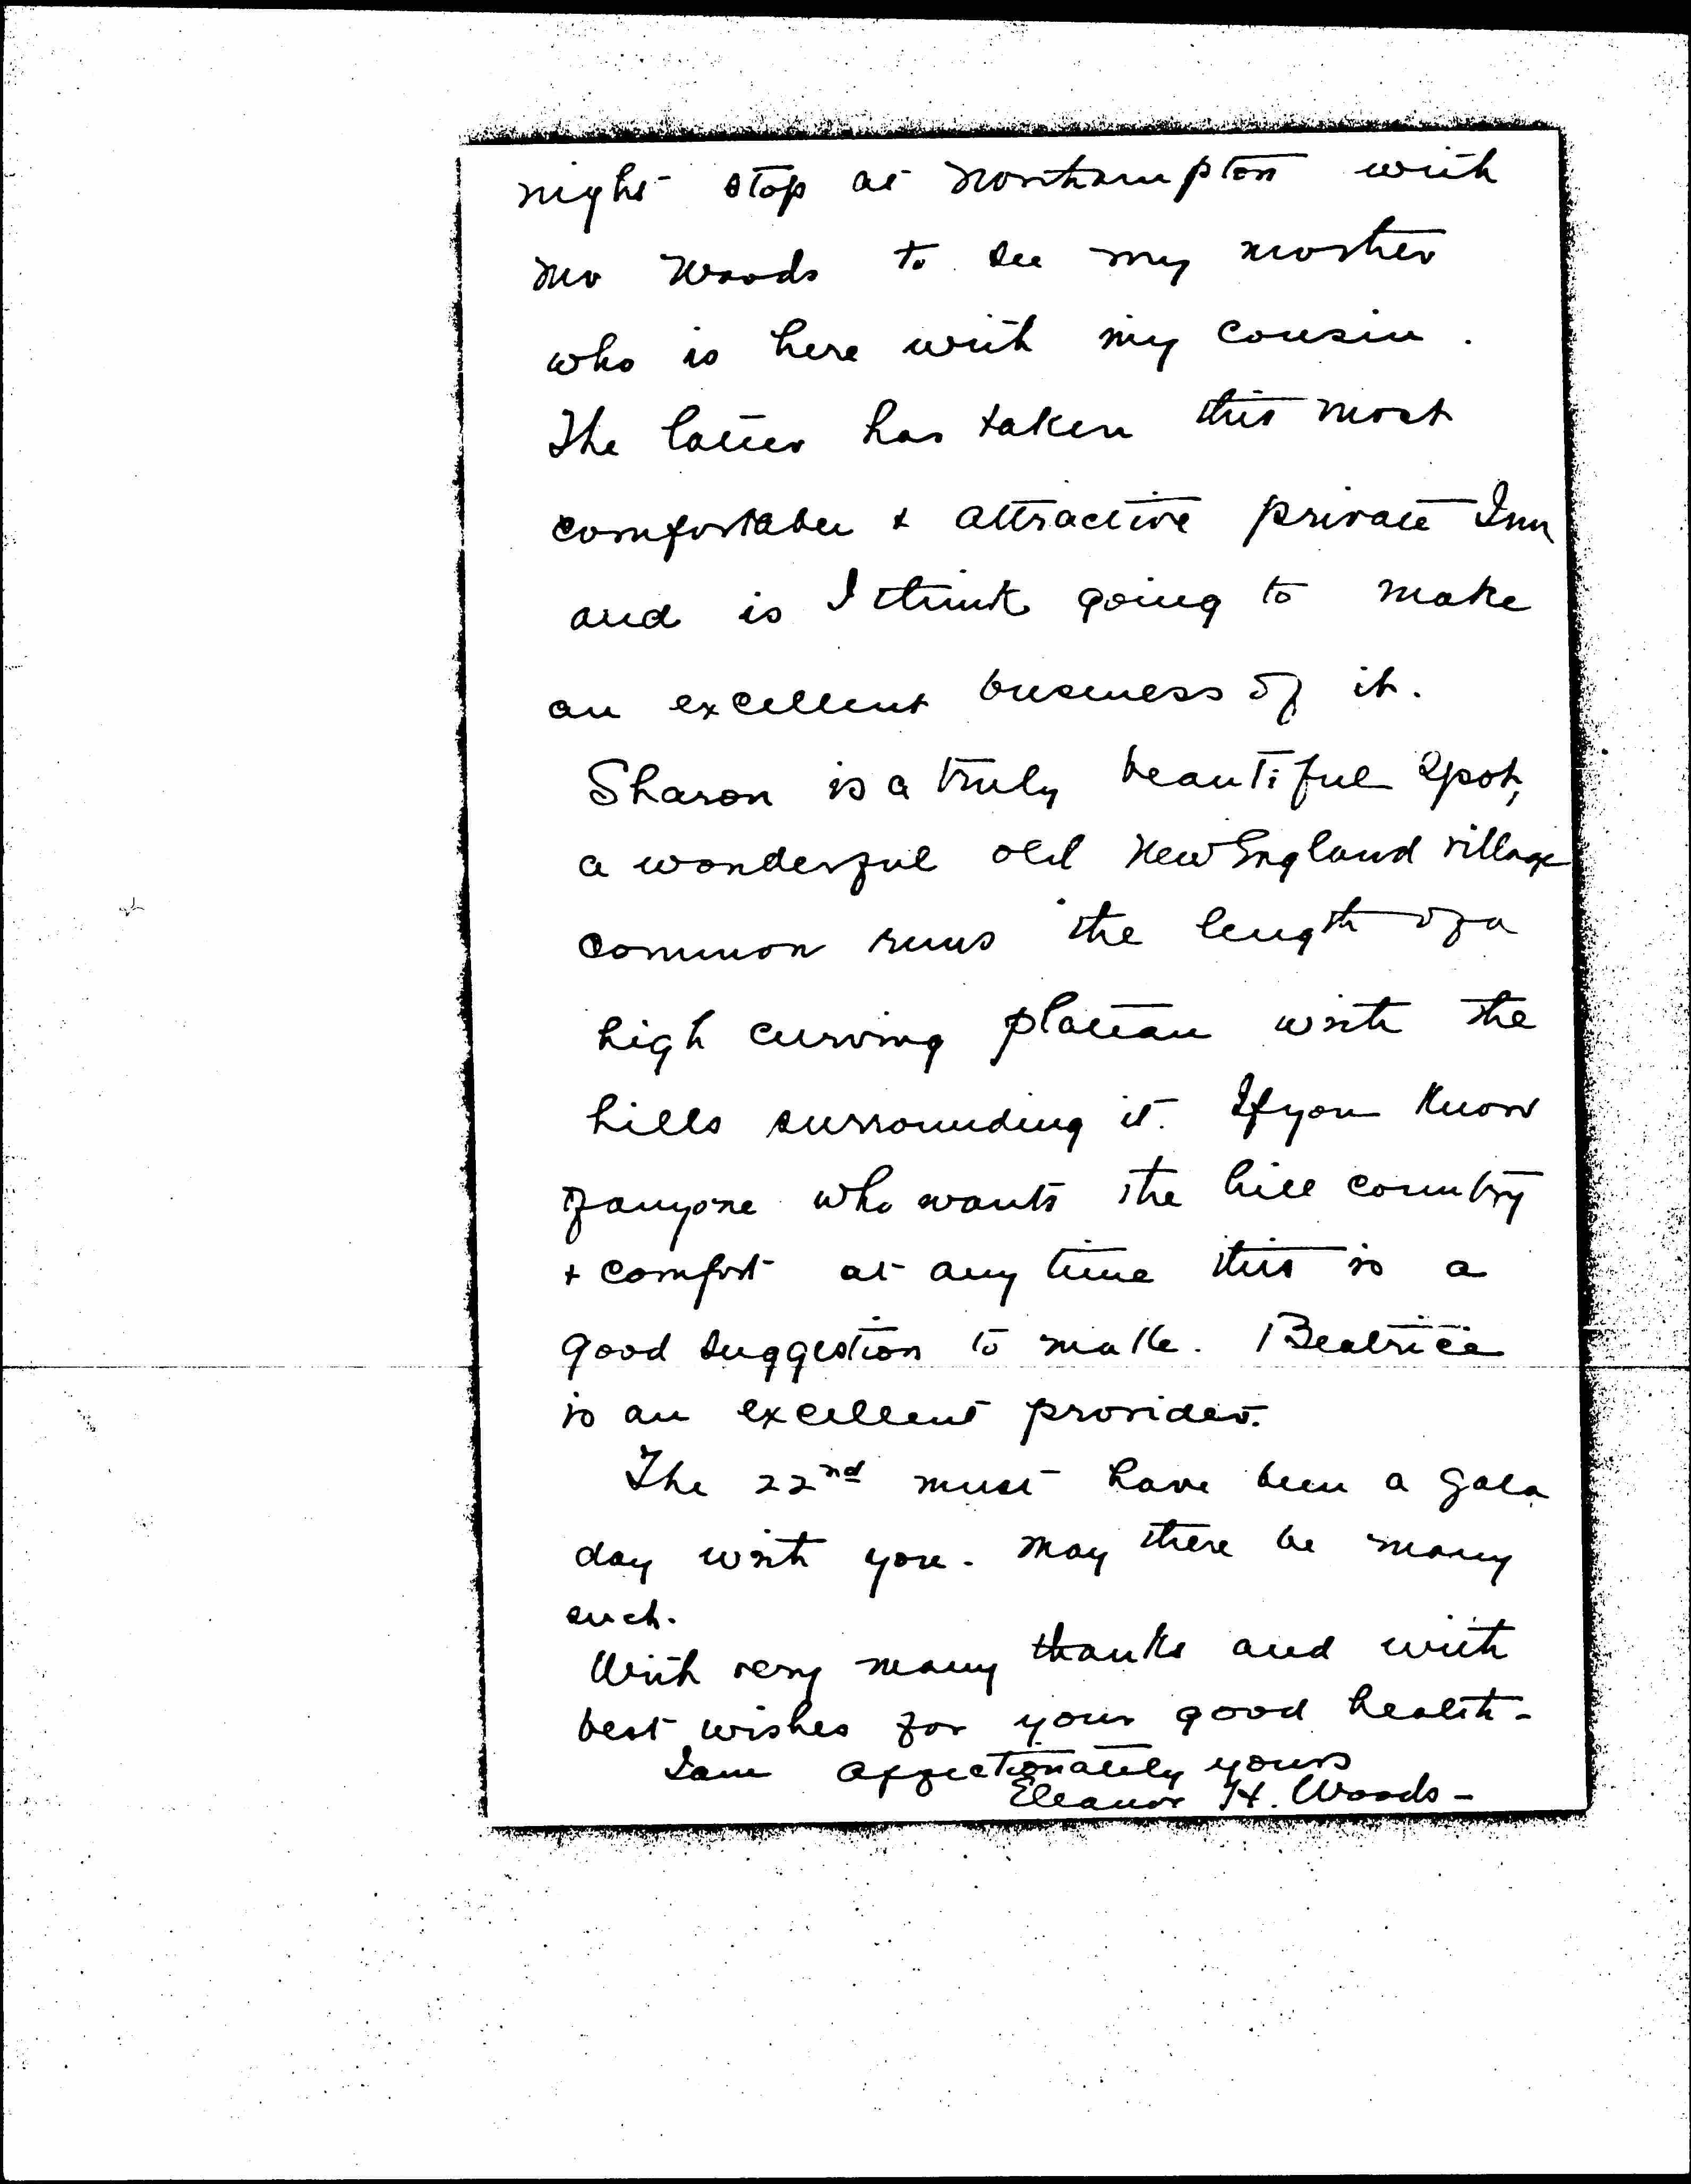 night stop at Northampton with
Mr Woods to see my mother
who is here with my cousin.
The latter has taken this most
comfortable + attractive private Inn
and is I think going to make
an excellent business of it.
Sharon is a truly beautiful spot,
a wonderful old New England village
common runs the length of a
high curving plateau with the
hills surrounding it. If you know
of anyone who wants the hill country
+ comfort at any time this is a
good suggestion to make. Beatrice
is an excellent provider.
The 22nd must have been a gala
day with you. May there be many
such.
With very many thanks and with
best wishes for your good health -
I am affectionately yours
Eleanor H. Woods -